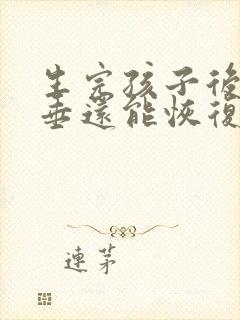 生完孩子後
垂還能恢復
連茅